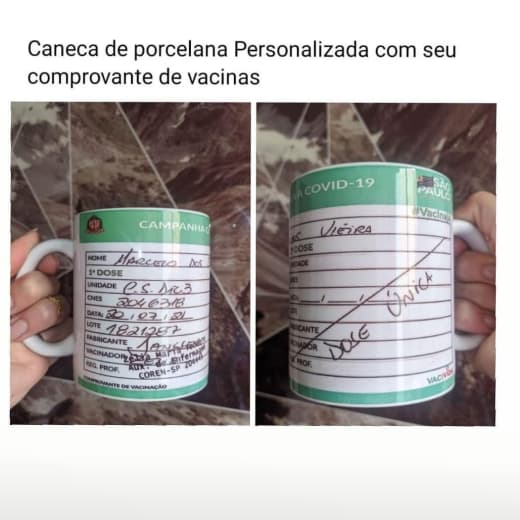 Caneca de porcelana Personalizada com seu
comprovante de vacinas
CAMPANHA
NOME MARCELO DOS
1ª DOSE
UNIDADE C.S.
CNES 2046318
DATA: 20/07/21
LOTE 1821287
FABRICANTE
VACINADOR
REG. PROF. Aux. de Enfermagem
COREN-SP
COMPROVANTE DE VACINAÇÃO
COVID-19
SÃO
PAULO
#Vacina
VIEIRA
DOSE
DADE
FABRICANTE
VACINADOR
PROF.
DOSE ÚNICA